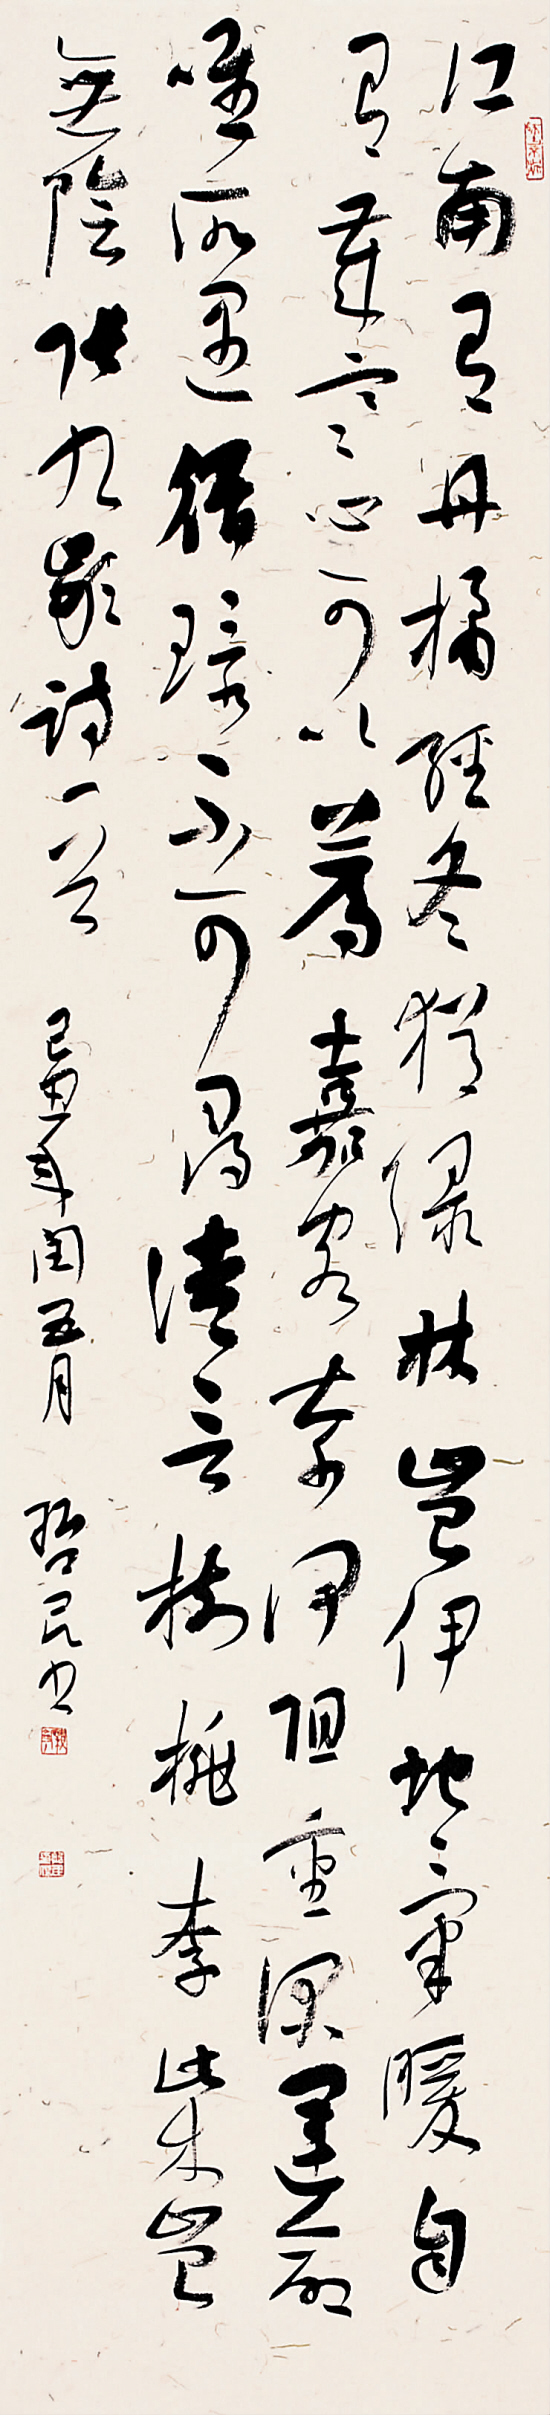 江南有丹橘經冬猶綠林豈伊地氣暖自
有歲寒心可以薦嘉客奈何阻重深運命
唯所遇循環不可尋徒言樹桃李此木豈
無陰張九齡詩一首 己丑年閏五月 哲民书